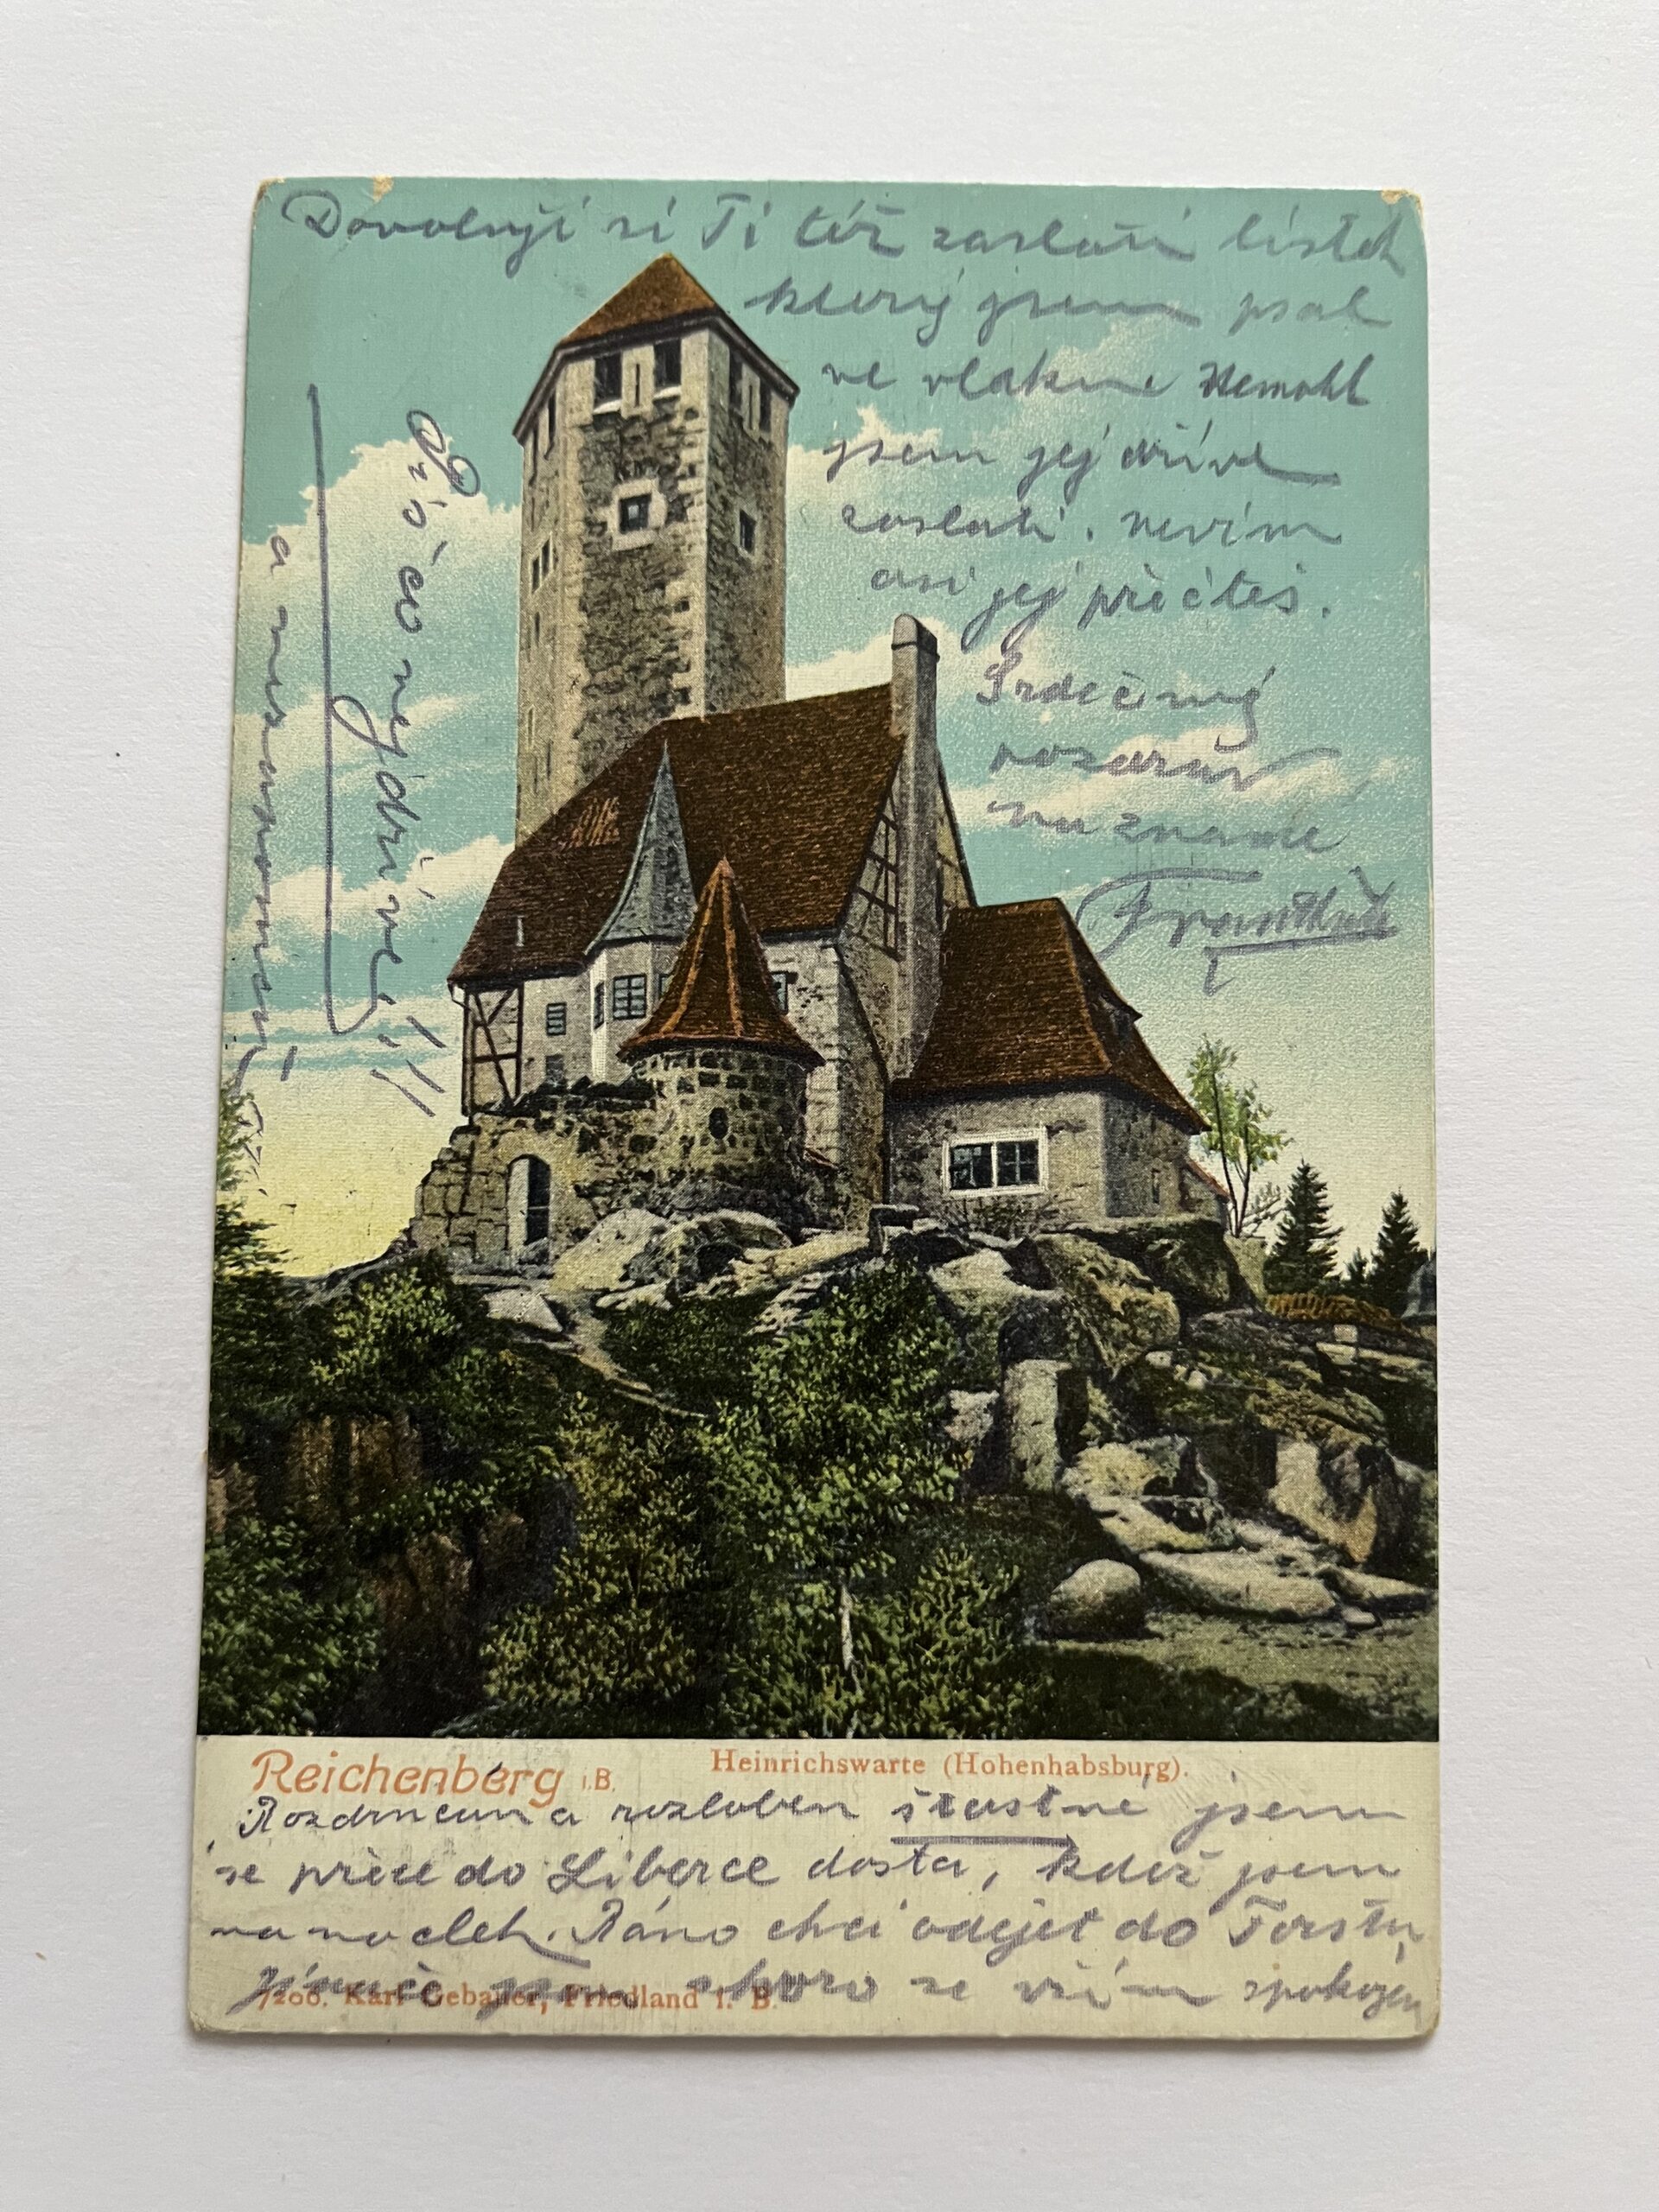 Dovoluji si Ti též zaslati lístek
který jsem psal
ve vlakně Nemohl
jsem jej dříve
zaslati. nevím
asi jej přečteš.
Srdečný
pozdrav
František
Piš co nejdříve!!
a nezapomeň
Reichenberg i.B.
Heinrichswarte (Hohenhabsburg).
a rozloben šťastně jsem
se přece do Liberce dosta, kdež jsem
na nocleh. Ráno chci odejet do
jinače skoro se vším spokojen
7200. Karl Gebauer, Friedland i. B.